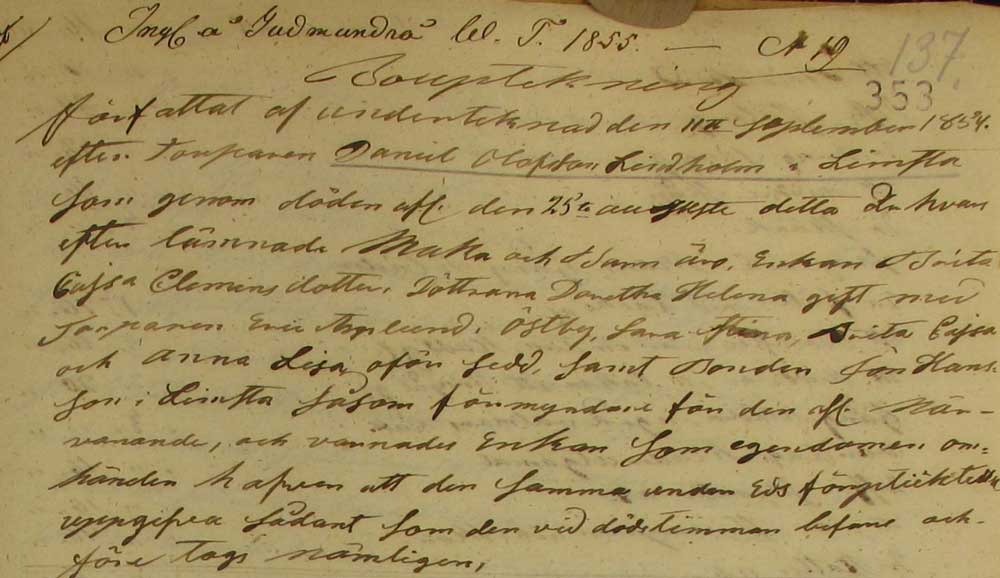 Ingl. å Gudmundrå W. T. 1855. — N 19 137.
353
Bouptekning
författat af undenteknad den 11te September 1854.
efter Torparen Daniel Olofson Lindholm i Limsta
som genom döden afl. den 25te auguste detta år hvar
efter lämnade Maka och Barn äro, Enkan Brita
Cajsa Clemins dotter, Döttrarna Dorotha Helena gift med
Torparen Eric Asplund i Östby, Sara Stina, Brita Cajsa
och Anna Lisa oför sedd, samt Bonden Jon Hans-
son i Limsta såsom förmyndare för den afl. När-
varande, och varnades Enkan som egendomen om-
händer hafver att den samma under Eds förpliktelse
uppgifva sådant som den vid dödstimman befans och
före togs nämligen,